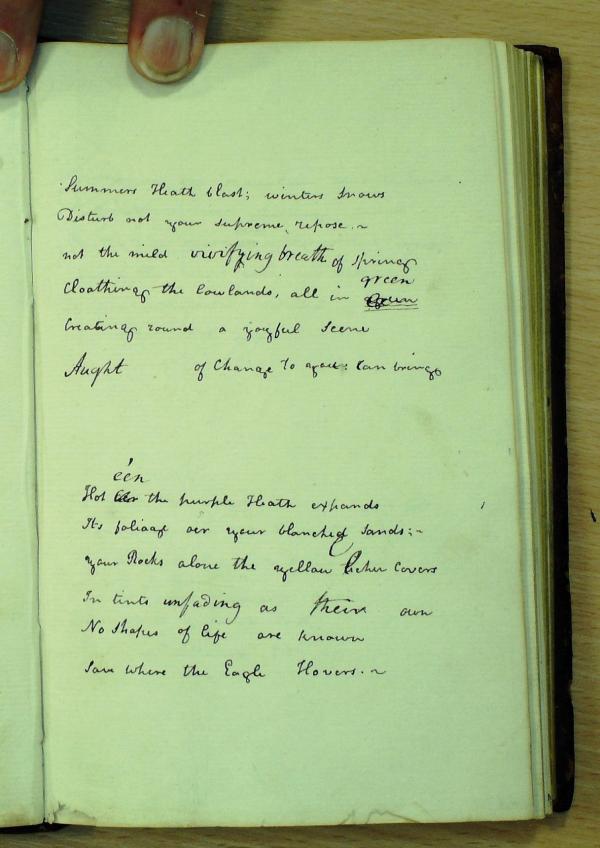 Summers Heath blast; winters snows
Disturb not your supreme, repose.~
not the mild vivifying breath of spring
green
Cloathing the lowlands, all in
Creating round a joyful scene
Aught of Change to you: can bring
e'en
Not the purple Heath expands
Its foliage oer your blanched sands;~
your Rocks alone the yellow licher Covers
In tints unfading as their own
No Shapes of life are known
Save where the Eagle Hovers.~